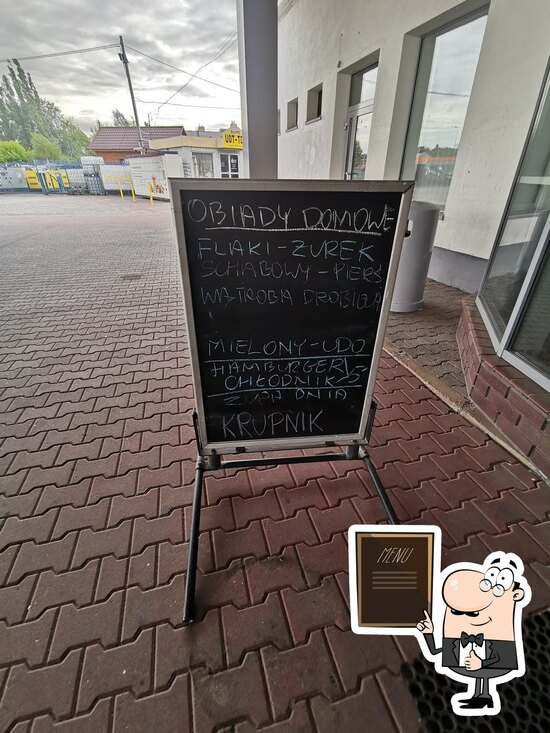 OBIADY DOMOWE
FLAKI-ŻUREK
SCHABOWY-PIERŚ
WĄTROBKA DROBIOWA
MIELONY-UDO
HAMBURGERY
CHŁODNIK
ZUPA DNIA
KRUPNIK
UDT-TO
MENU